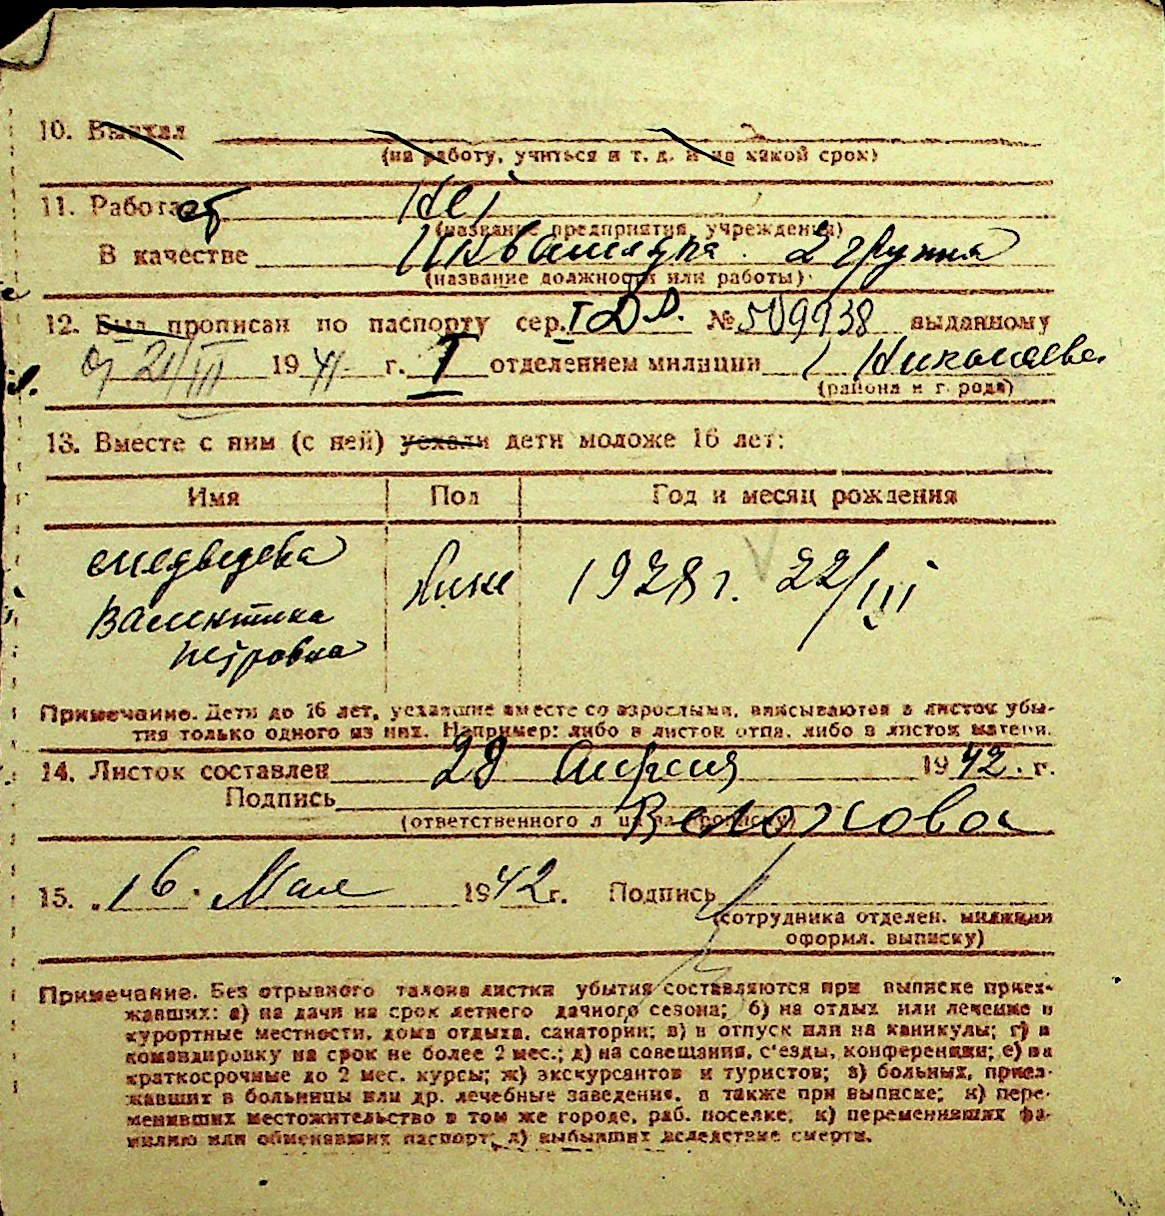 10. Выехал
(на работу, учиться и т. д. и на какой срок)
11. Работает Нет
(название предприятия, учреждения)
В качестве Инвалидка 2 группа
(название должности или работы)
12. Был прописан по паспорту сер. № 509938 выданному
от 21/III 1941 г. I отделением милиции г Николаева
(района и г рода)
13. Вместе с ним (с ней) уехали дети моложе 16 лет:
Имя Пол Год и месяц рождения
Медведева
Валентина
Петровна
1928 г. 22/III
Примечание. Дети до 16 лет, уехавшие вместе со взрослыми, вписываются в листок убы-
тия только одного из них. Например: либо в листок отца, либо в листок матери.
14. Листок составлен 29 Апреля 1942 г.
Подпись
(ответственного лица за прописку)
15. „16" Мая 1942 г. Подпись
(сотрудника отделен. милиции
оформл. выписку)
Примечание. Без отрывного талона листки убытия составляются при выписке приез-
жавших: а) на дачи на срок летнего дачного сезона; б) на отдых или лечение в
курортные местности, дома отдыха, санатории; в) в отпуск или на каникулы; г) в
командировку на срок не более 2 мес.; д) на совещания, с'езды, конференции; е) на
краткосрочные до 2 мес. курсы; ж) экскурсантов и туристов; з) больных, приез-
жавших в больницы или др. лечебные заведения, а также при выписке; и) пере-
менивших местожительство в том же городе, раб. поселке; к) переменивших фа-
милию или обменявших паспорт; л) выбывших вследствие смерти.